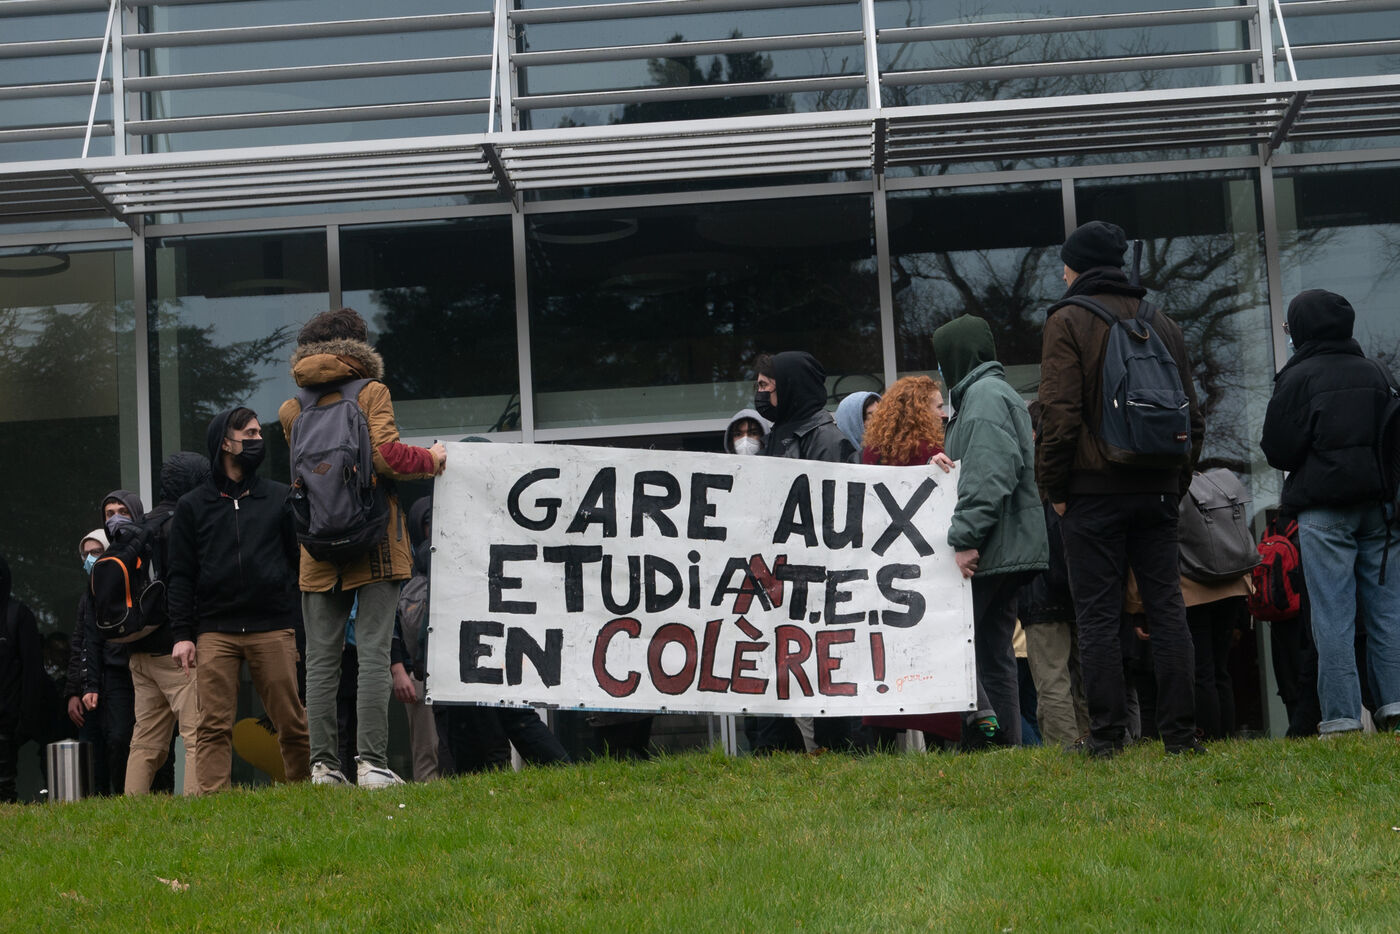 GARE AUX
ETUDIANT.E.S
EN COLÈRE!
grrr...